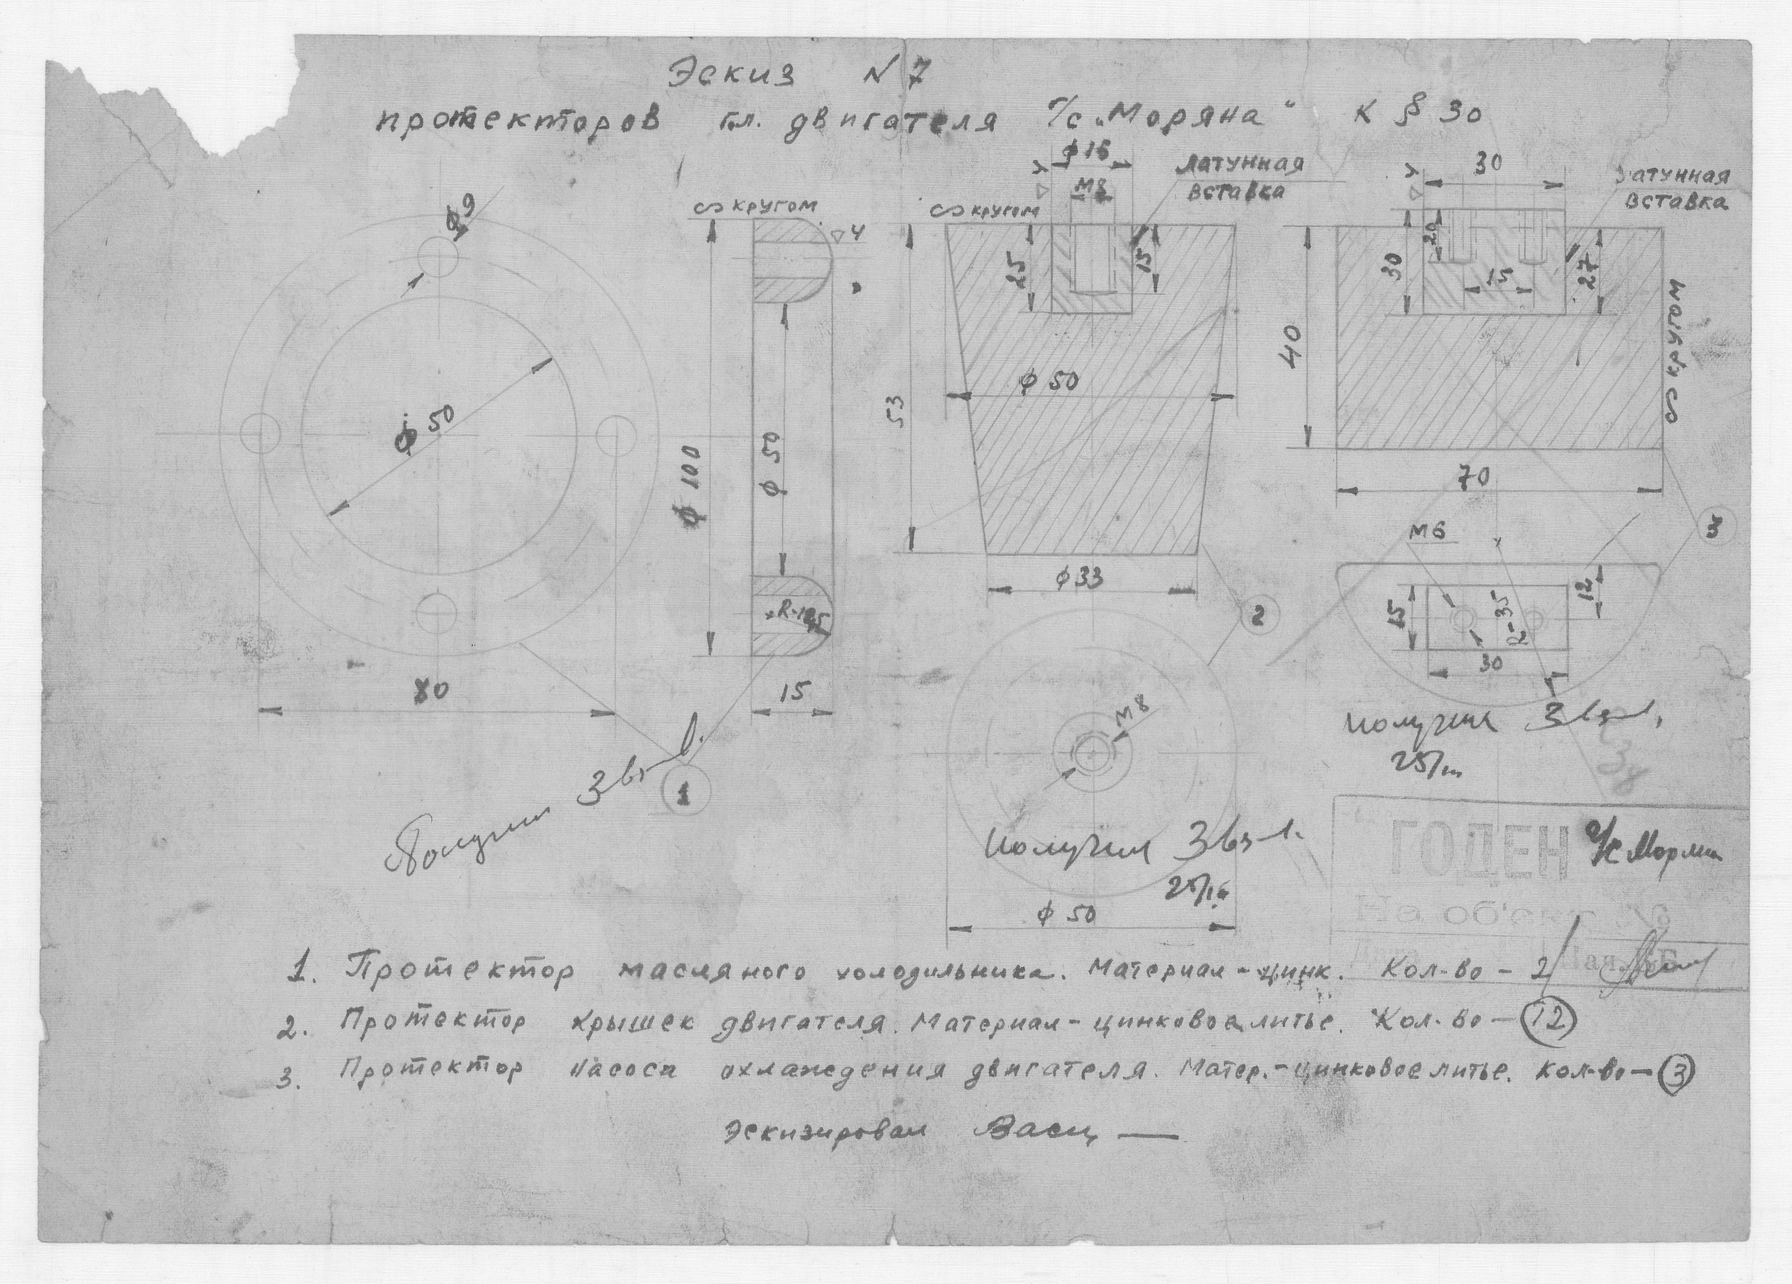 Эскиз N 7
протекторов гл. двигателя т/с „Моряна“ к § 30
ϕ9
ϕ 50
80
∽ кругом
▽4
ϕ 100
ϕ 50
R-12,5
15
1
∽ кругом
ϕ16
М8
латунная
вставка
25
15
53
ϕ 50
ϕ33
2
М8
ϕ 50
30
латунная
вставка
20
30
15
27
40
∽ кругом
70
3
М6
15
R-35
12
30
Получил
получил
получил
ГОДЕН
На об'ект №
1. Протектор масляного холодильника. Материал - цинк. Кол-во - 2
2. Протектор крышек двигателя. Материал - цинковое литье. Кол-во - 12
3. Протектор насоса охлаждения двигателя. Матер.- цинковое литье. Кол-во - 3
Эскизировал